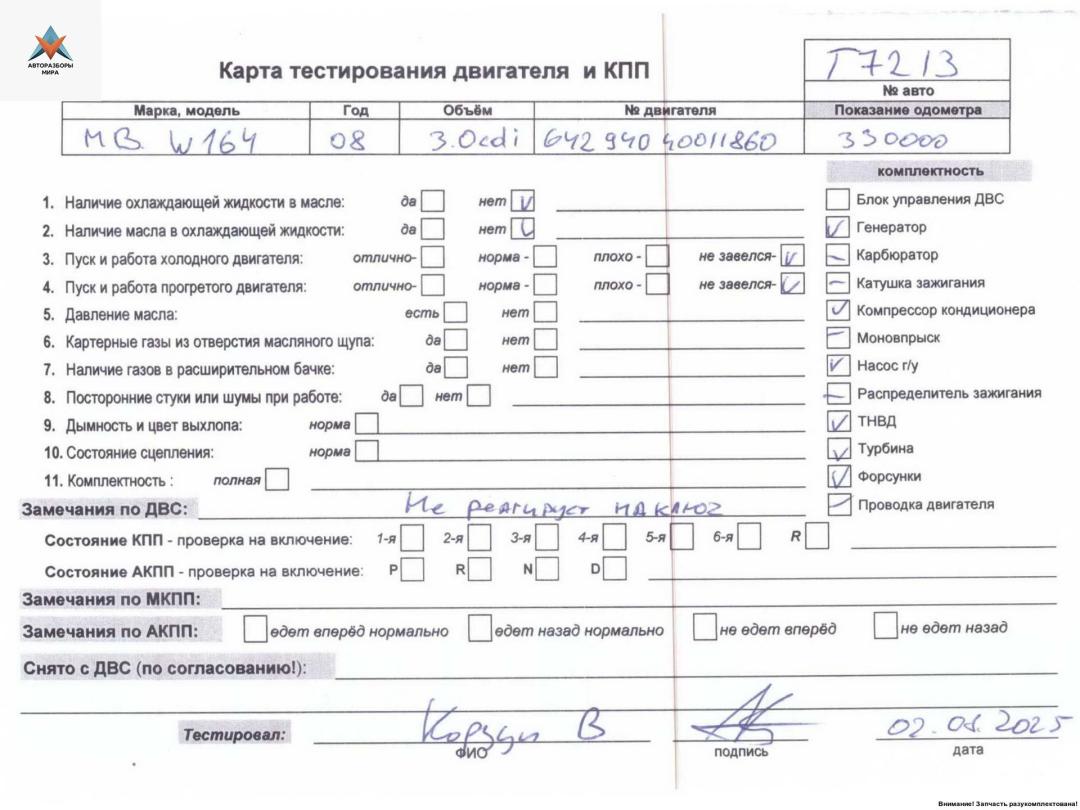 АВТОРАЗБОРЫ
МИРА
Карта тестирования двигателя и КПП
T7213
№ авто
Марка, модель Год Объём № двигателя Показание одометра
MB W164 08 3.0cdi 642 940 40011860 330000
комплектность
1. Наличие охлаждающей жидкости в масле: да нет
Блок управления ДВС
2. Наличие масла в охлаждающей жидкости: да нет
Генератор
3. Пуск и работа холодного двигателя: отлично- норма - плохо - не завелся-
Карбюратор
4. Пуск и работа прогретого двигателя: отлично- норма - плохо - не завелся-
Катушка зажигания
5. Давление масла: есть нет
Компрессор кондиционера
6. Картерные газы из отверстия масляного щупа: да нет
Моновпрыск
7. Наличие газов в расширительном бачке: да нет
Насос г/у
8. Посторонние стуки или шумы при работе: да нет
Распределитель зажигания
9. Дымность и цвет выхлопа: норма
ТНВД
10. Состояние сцепления: норма
Турбина
11. Комплектность : полная
Форсунки
Замечания по ДВС: Не реагирует на ключ
Проводка двигателя
Состояние КПП - проверка на включение: 1-я 2-я 3-я 4-я 5-я 6-я R
Состояние АКПП - проверка на включение: P R N D
Замечания по МКПП:
Замечания по АКПП: едет вперёд нормально едет назад нормально не едет вперёд не едет назад
Снято с ДВС (по согласованию!):
Тестировал: В 2025
ФИО подпись дата
Внимание! Запчасть разукомплектована!